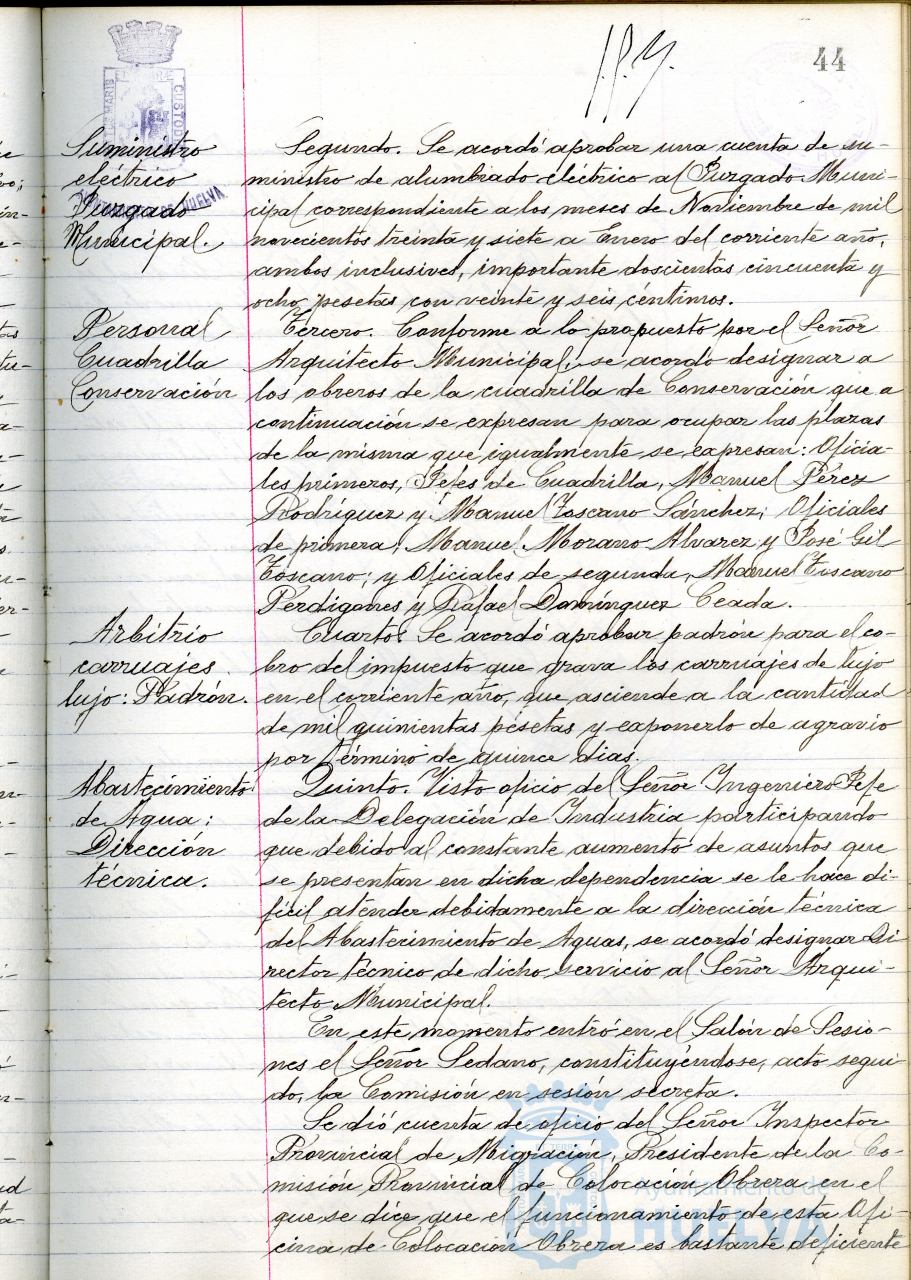 44
Suministro
eléctrico
Juzgado
Municipal.
Segundo. Se acordó aprobar una cuenta de su-
ministro de alumbrado eléctrico al Juzgado Muni-
cipal correspondiente a los meses de Noviembre de mil
novecientos treinta y siete a Enero del corriente año,
ambos inclusives, importante doscientas cincuenta y
ocho pesetas con veinte y seis céntimos.
Personal
Cuadrilla
Conservación
Tercero. Conforme a lo propuesto por el Señor
Arquitecto Municipal, se acordó designar a
los obreros de la cuadrilla de Conservación que a
continuación se expresan para ocupar las plazas
de la misma que igualmente se expresan: Oficia-
les primeros, Jefes de Cuadrilla, Manuel Pérez
Rodríguez y Manuel Toscano Sánchez; Oficiales
de primera, Manuel Morano Alvarez y José Gil
Toscano; y Oficiales de segunda, Manuel Toscano
Perdigones y Rafael Domínguez Ceada.
Arbitrio
carruajes
lujo: Padrón.
Cuarto. Se acordó aprobar padrón para el co-
bro del impuesto que grava los carruajes de lujo
en el corriente año, que asciende a la cantidad
de mil quinientas pesetas y exponerlo de agravio
por término de quince dias.
Abastecimiento
de Agua:
Dirección
técnica.
Quinto. Visto oficio del Señor Ingeniero Jefe
de la Delegación de Industria participando
que debido al constante aumento de asuntos que
se presentan en dicha dependencia se le hace di-
fícil atender debidamente a la dirección técnica
del Abastecimiento de Aguas, se acordó designar Di
rector técnico de dicho servicio al Señor Arqui-
tecto Municipal.
En este momento entró en el Salón de Sesio-
nes el Señor Sedano, constituyéndose, acto segui-
do, la Comisión en sesión secreta.
Se dió cuenta de oficio del Señor Inspector
Provincial de Migración, Presidente de la Co-
misión Provincial de Colocación Obrera en el
que se dice que el funcionamiento de esta Ofi-
cina de Colocación Obrera es bastante deficiente
Ayuntamiento de
HUELVA